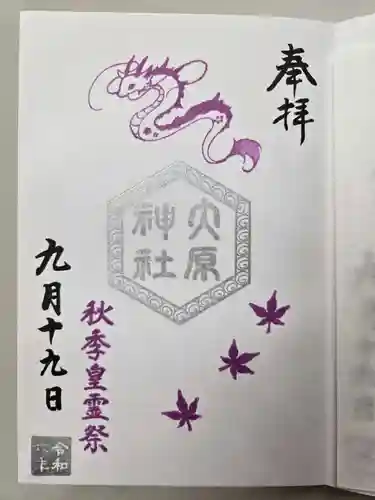 奉拝
大原
神社
秋季皇霊祭
九月十九日
令和